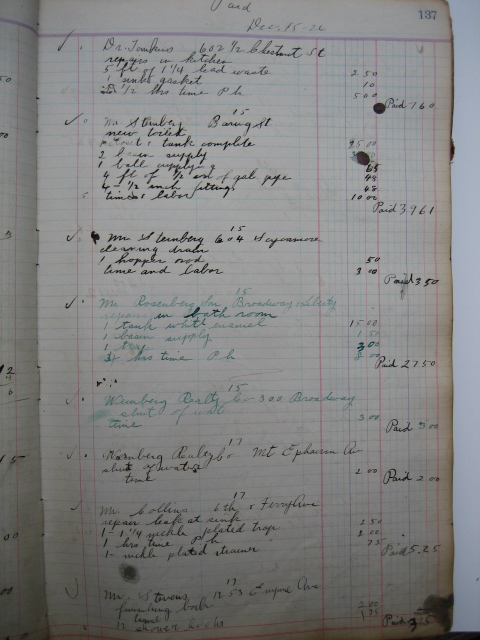 Paid
137
Dec. 15-26
Dr. Tomkins 602 1/2 Chestnut St
repairs in kitchen
5 ft of 1 1/4 lead waste 2 50
1 sink gasket 10
1/2 hrs time P h 5 00
Paid 7 60
15
Mr Steinberg St
new toilet
1 tank complete 25 00
2 supply
1 ball 65
4 ft of 1/2 in of gal pipe 48
4 - 1/2 inch fittings 48
time & labor 10 00
Paid 39 61
15
Mr Steinberg 604 Sycamore
cleaning drain
1 hopper rod 50
time and labor 3 00
Paid 3 50
15
Mr. Rosenberg Broadway & Liberty
repairs in bath room
1 tank white enamel 15 00
1 basin supply 1 50
1 3 00
hrs time P h 8 00
Paid 27 50
15
Weinberg Realty Co 300 Broadway
shut of water
time 3 00
Paid 3 00
17
Realty Co Mt Ephraim Av
shut of water
time 2 00
Paid 2 00
17
Mr. Collins 6th & Ferry Ave
repair leak at sink
1 - 1 1/4 nickle plated trap 2 50
1 hrs time P h 2 00
1 - nickle plated strainer 75
Paid 5.25
17
Mr. Stevens 1253 Empire Ave
time 2 00
12 shower hooks 1 75
Paid